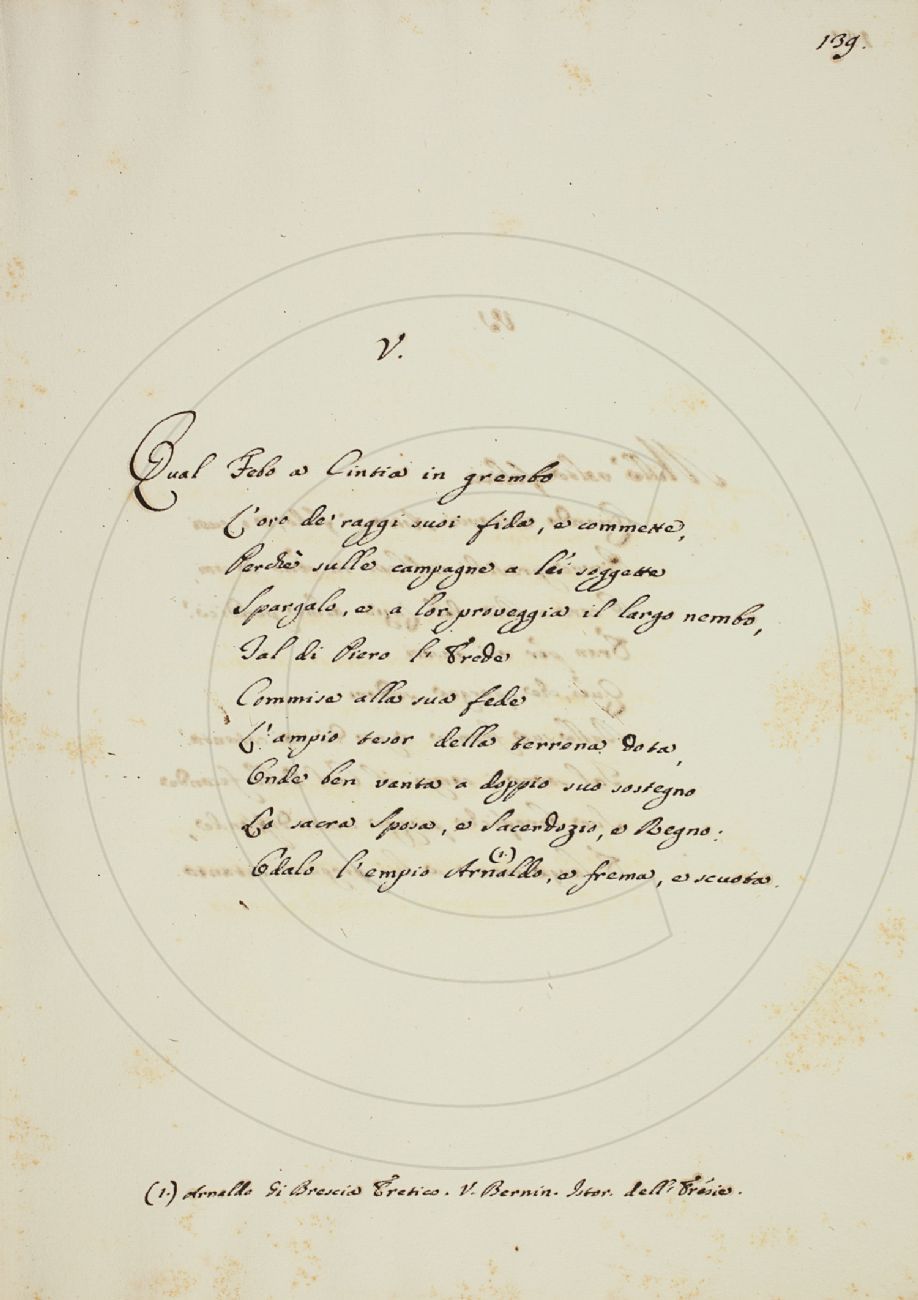 139.
V.
Qual Febo a Cintia in grembo
L'oro de' raggi suoi fida, e commette,
Perchè sulle campagne a lei soggette
Spargalo, e a lor proveggia il largo nembo,
Tal di Piero l'Erede
Commise alla sua fede
L'ampio tesor della terrena dota,
Onde ben vanta a doppio suo sostegno
La sacra Sposa, e Sacerdozio, e Regno:
Odalo l'empio Arnaldo, e frema, e scuota.
(1.)
(1.) Arnaldo di Brescia Eretico. V. Bernin. Istor. dell'Eresie.